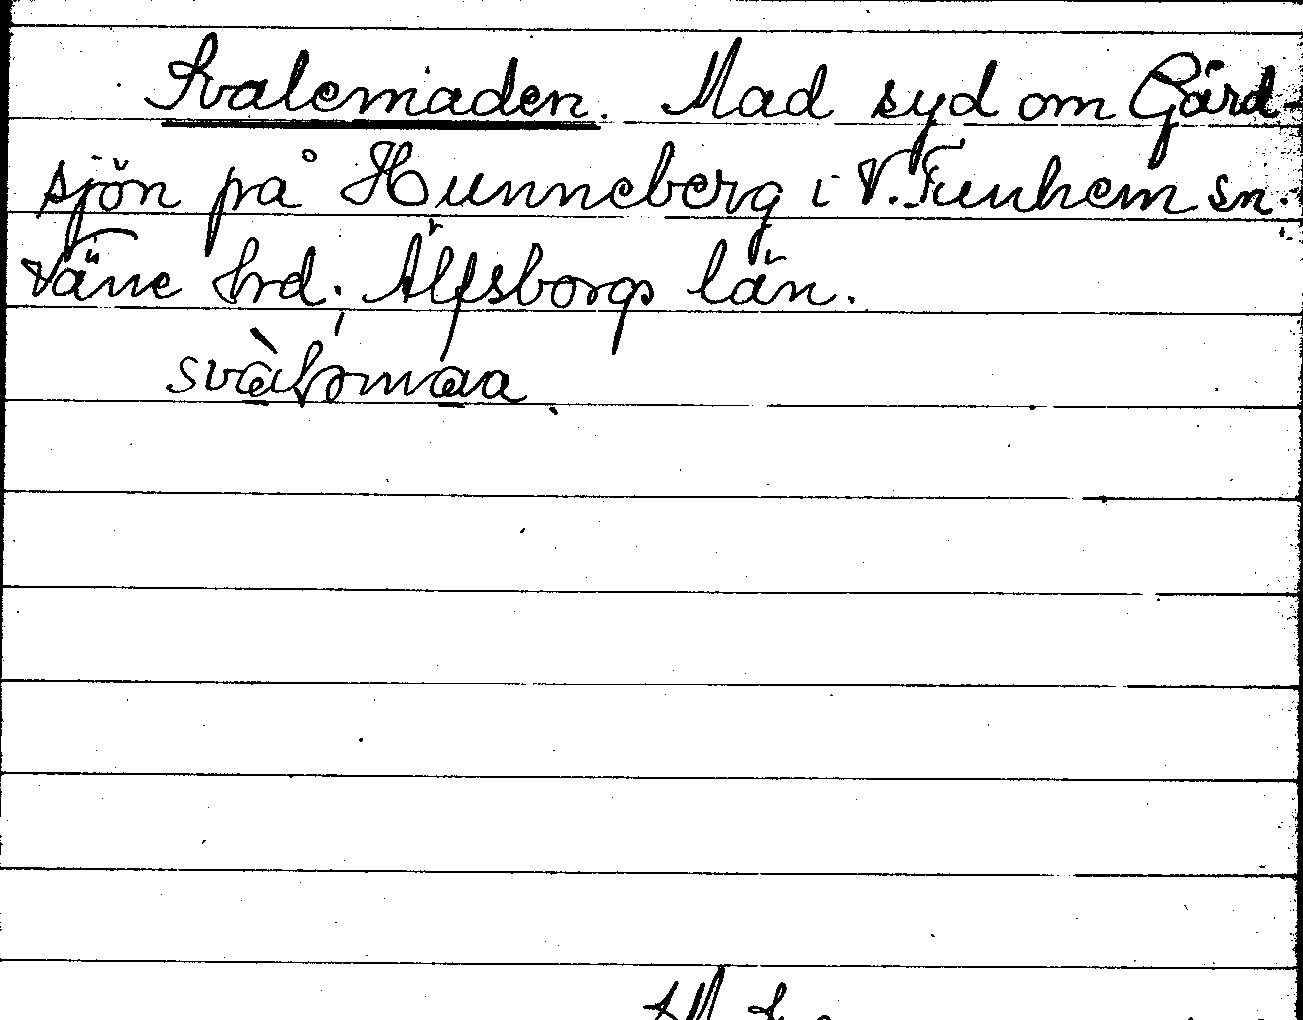 Svalemaden. Mad syd om Gärd-
sjön på Hunneberg i V. Tunhem sn.
Väne hrd. Älfsborgs län.